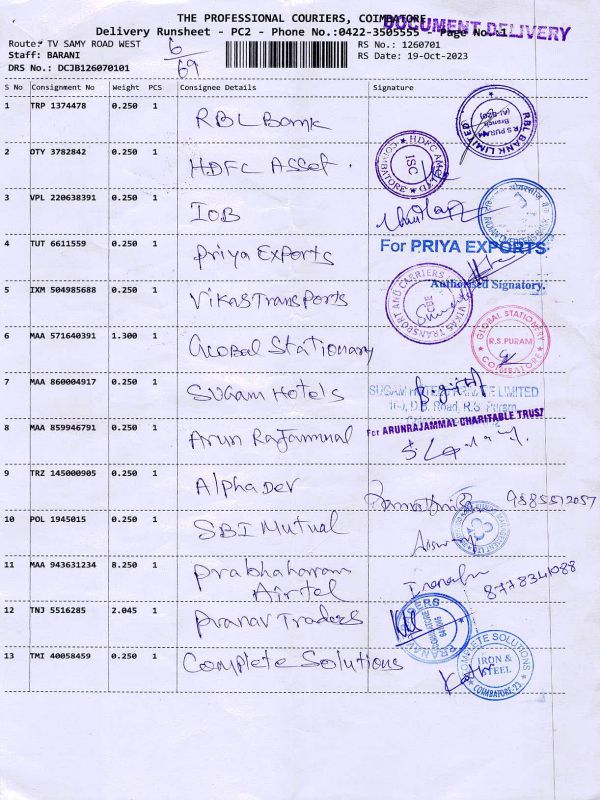 THE PROFESSIONAL COURIERS, COIMBATORE
DOCUMENT DELIVERY
Delivery Runsheet - PC2 - Phone No.:0422-3505555 Page No.:1
Route: TV SAMY ROAD WEST
Staff: BARANI
DRS No.: DCJB126070101
6/69
RS No.: 1260701
RS Date: 19-Oct-2023
S No Consignment No Weight PCS Consignee Details Signature
1 TRP 1374478 0.250 1 RBL Bank
RBL BANK LIMITED R S PURAM Branch
2 OTY 3782842 0.250 1 HDFC Asset.
HDFC AMC LTD ISC COIMBATORE
3 VPL 220638391 0.250 1 IOB
4 TUT 6611559 0.250 1 Priya Exports
For PRIYA EXPORTS
Authorised Signatory.
5 IXM 504985688 0.250 1 Vikas Transports
VIKAS TRANSPORT AND CARRIERS CBE
6 MAA 571640391 1.300 1 Global Stationary
GLOBAL STATIONERY R.S.PURAM COIMBATORE
7 MAA 860004917 0.250 1 Sugam Hotels
SUGAM HOTELS PRIVATE LIMITED
D.B. Road, R.S. Puram
8 MAA 859946791 0.250 1 Arun Rajammal
For ARUNRAJAMMAL CHARITABLE TRUST
9 TRZ 145000905 0.250 1 Alpha Dev
9885512057
10 POL 1945015 0.250 1 SBI Mutual
11 MAA 943631234 8.250 1 Prabhaharam
Airtel
8778341088
12 TNJ 5516285 2.045 1 Pranav Traders
PRANAV TRADERS
13 TMI 40058459 0.250 1 Complete Solutions
COMPLETE SOLUTIONS IRON & STEEL COIMBATORE-23